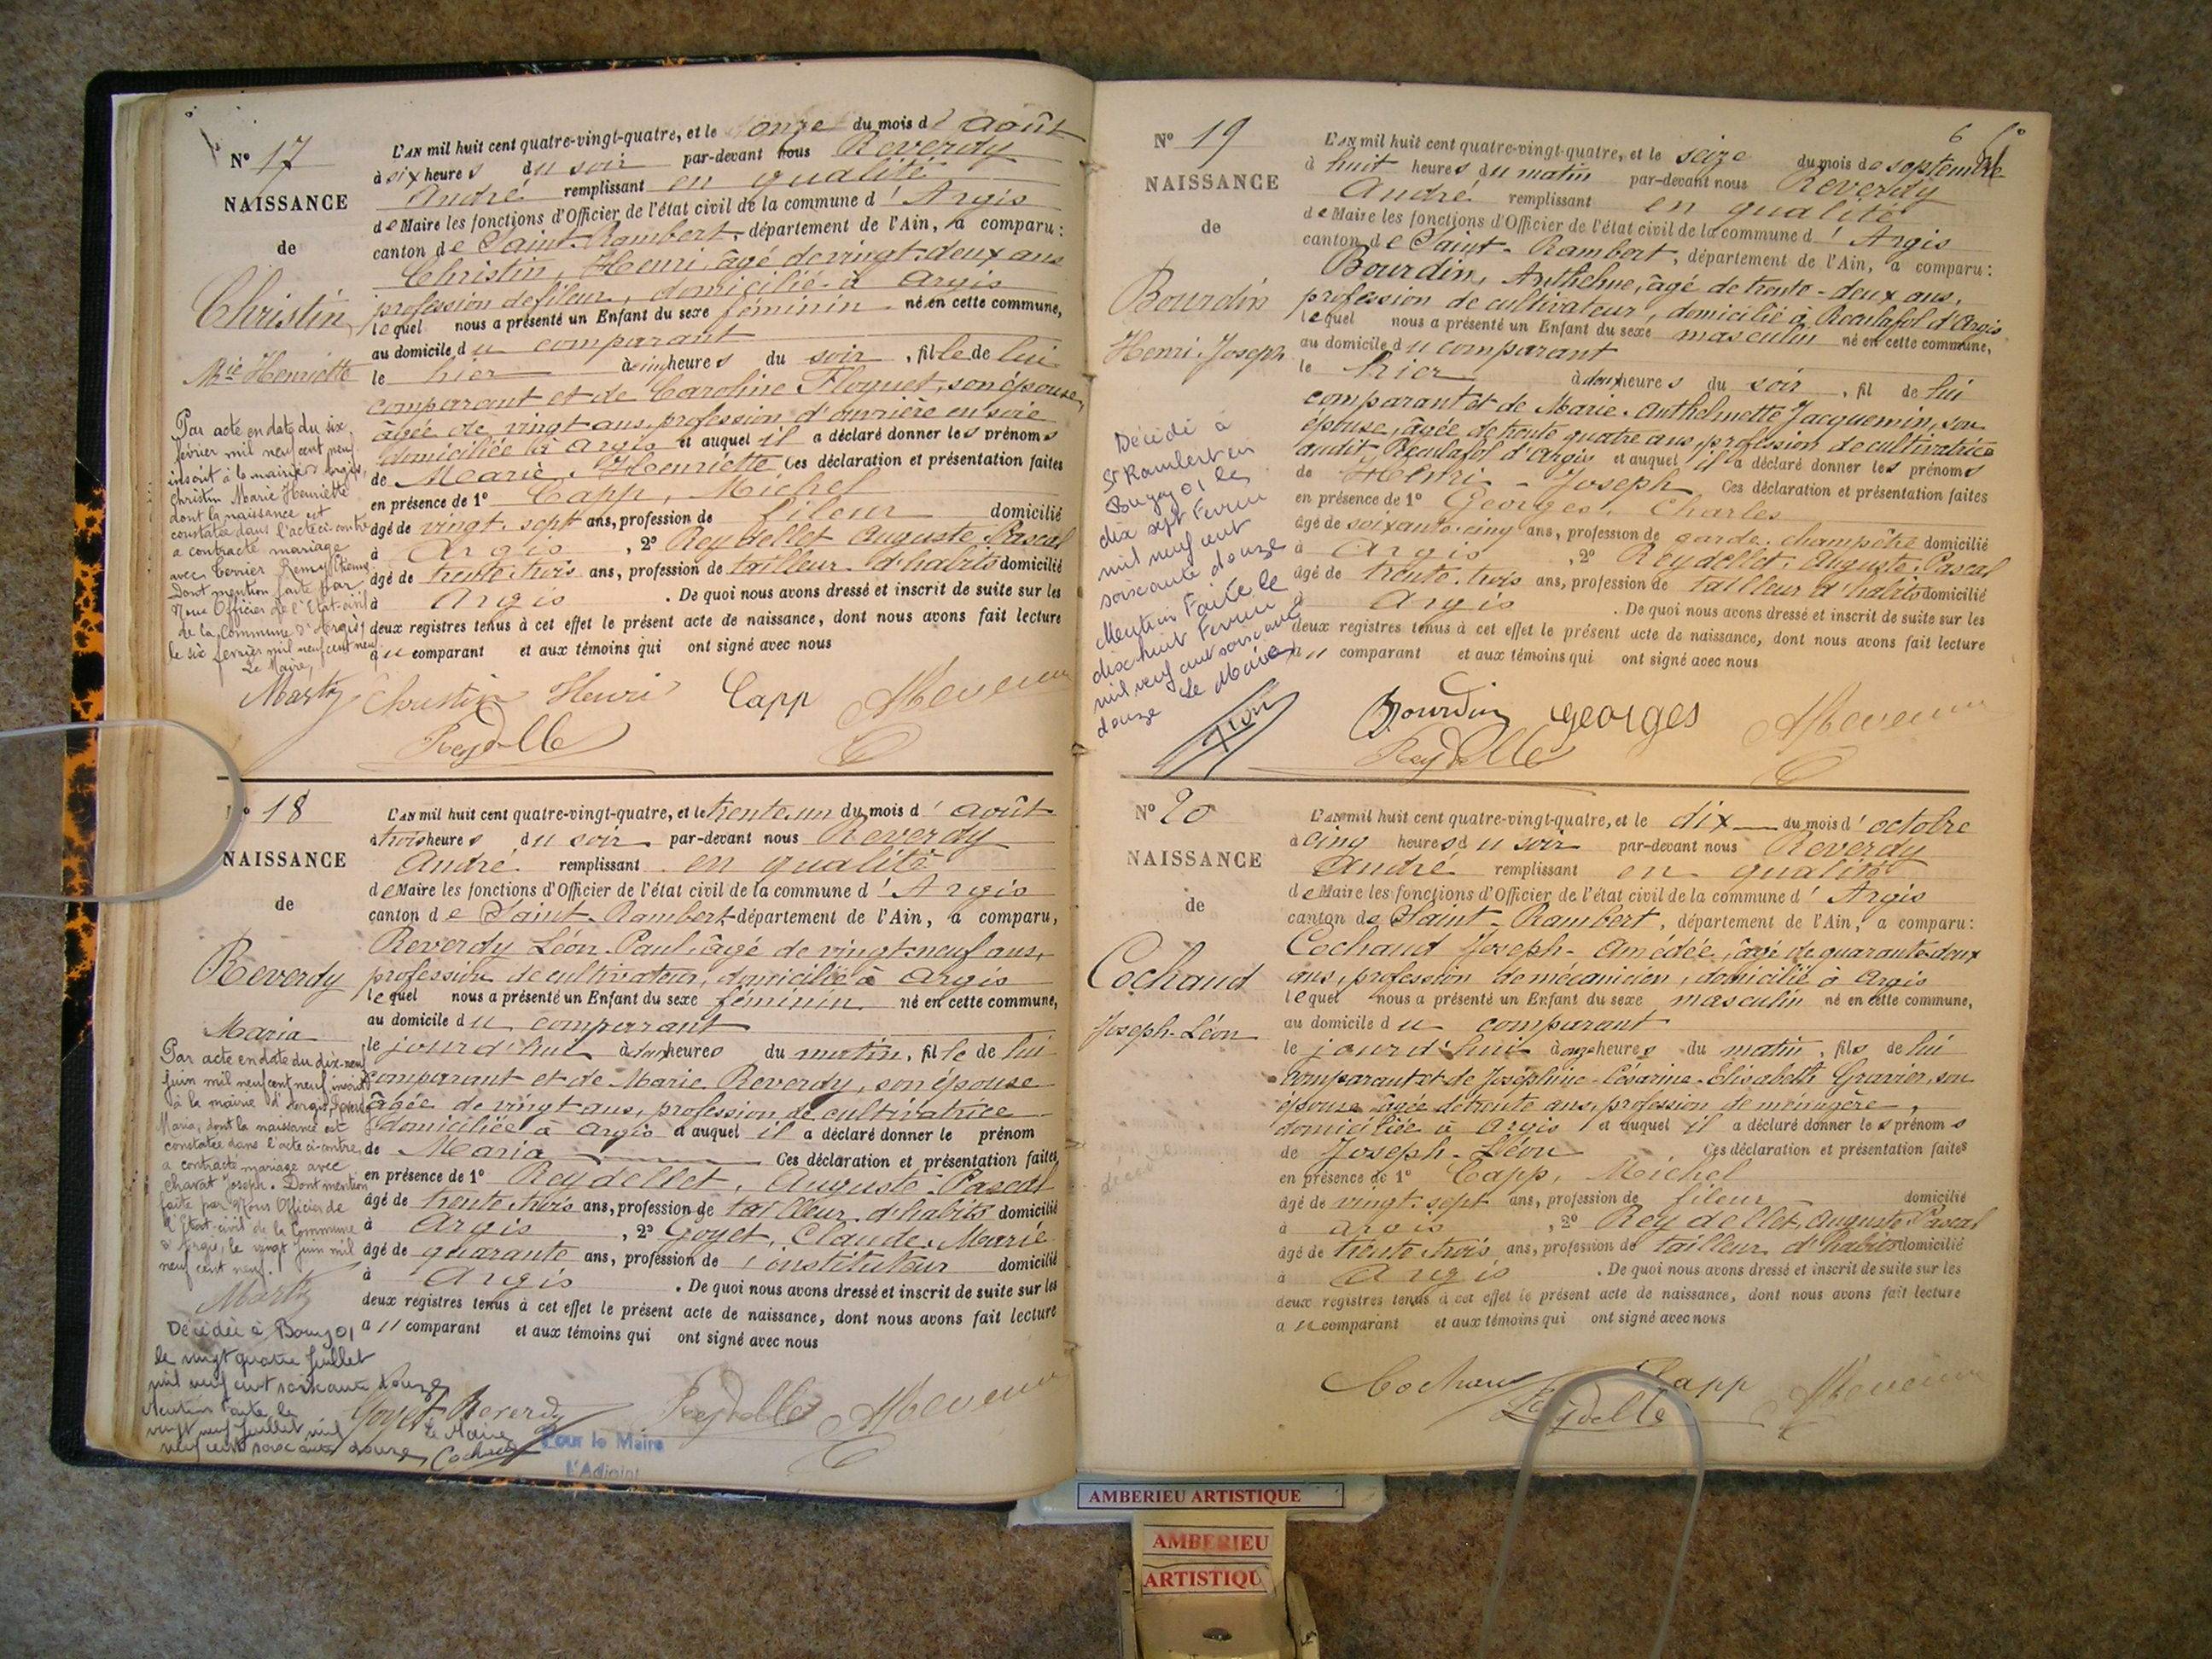 N° 17
NAISSANCE
de
Christin
Mie Henriette
Par acte en date du six
février mil neuf cent neuf
inscrit à la mairie d'Argis,
Christin Marie Henriette
dont la naissance est
constatée dans l'acte ci-contre
a contracté mariage
avec Terrier Remy Etienne
Dont mention faite par
Nous Officier de l'Etat-civil
de la Commune d'Argis,
le six février mil neuf cent neuf
Le Maire,
L'AN mil huit cent quatre-vingt-quatre, et le onze du mois d'août
à six heures du soir par-devant nous Reverdy
André remplissant en qualité
de Maire les fonctions d'Officier de l'état civil de la commune d'Argis
canton de Saint-Rambert, département de l'Ain, a comparu :
Christin, Henri, âgé de vingt-deux ans
profession de fileur, domicilié à Argis
lequel nous a présenté un Enfant du sexe féminin né en cette commune,
au domicile du comparant
le hier à cinq heures du soir, fille de lui
comparant et de Caroline Floquet, son épouse,
âgée de vingt ans, profession d'ouvrière en soie
domiciliée à Argis et auquel il a déclaré donner les prénoms
de Marie, Henriette Ces déclaration et présentation faites
en présence de 1° Capp, Michel
âgé de vingt-sept ans, profession de fileur domicilié
à Argis, 2° Reydellet Auguste Pascal
âgé de trente-trois ans, profession de tailleur d'habits domicilié
à Argis. De quoi nous avons dressé et inscrit de suite sur les
deux registres tenus à cet effet le présent acte de naissance, dont nous avons fait lecture
au comparant et aux témoins qui ont signé avec nous
Christin Henri Capp
Reydelle
N° 18
NAISSANCE
de
Reverdy
Maria
Par acte en date du dix-neuf
Juin mil neuf cent neuf inscrit
à la mairie d'Argis, Reverdy
Maria, dont la naissance est
constatée dans l'acte ci-contre,
a contracté mariage avec
Charat Joseph. Dont mention
faite par Nous Officier de
l'Etat-civil de la Commune
d'Argis, le vingt Juin mil
neuf cent neuf.
Décédée à Bourg 01
le vingt quatre Juillet
mil neuf cent soixante douze
Mention faite le
vingt neuf Juillet mil
neuf cent soixante douze
Le Maire
Pour le Maire
L'Adjoint
L'AN mil huit cent quatre-vingt-quatre, et le trente-un du mois d'août
à trois heures du soir par-devant nous Reverdy
André remplissant en qualité
de Maire les fonctions d'Officier de l'état civil de la commune d'Argis
canton de Saint-Rambert département de l'Ain, a comparu,
Reverdy Léon-Paul, âgé de vingt-neuf ans,
profession de cultivateur, domicilié à Argis
lequel nous a présenté un Enfant du sexe féminin né en cette commune,
au domicile du comparant
le jourd'hui à deux heures du matin, fille de lui
comparant et de Marie Reverdy, son épouse
âgée de vingt ans, profession de cultivatrice
domiciliée à Argis et auquel il a déclaré donner le prénom
de Maria Ces déclaration et présentation faites
en présence de 1° Reydellet, Auguste-Pascal
âgé de trente-trois ans, profession de tailleur d'habits domicilié
à Argis, 2° Goyet, Claude-Marie
âgé de quarante ans, profession de instituteur domicilié
à Argis. De quoi nous avons dressé et inscrit de suite sur les
deux registres tenus à cet effet le présent acte de naissance, dont nous avons fait lecture
au comparant et aux témoins qui ont signé avec nous
Goyet Reverdy Reydelle
6
N° 19
NAISSANCE
de
Bourdin
Henri-Joseph
Décédé à
St Rambert en
Bugey 01 le
dix sept Fevrier
mil neuf cent
soixante douze
Mention Faite le
dix huit Fevrier
mil neuf cent soixante
douze Le Maire
L'AN mil huit cent quatre-vingt-quatre, et le seize du mois de septembre
à huit heures du matin par-devant nous Reverdy
André remplissant en qualité
de Maire les fonctions d'Officier de l'état civil de la commune d'Argis
canton de Saint-Rambert, département de l'Ain, a comparu :
Bourdin, Anthelme, âgé de trente-deux ans,
profession de cultivateur, domicilié à Reculafol d'Argis
lequel nous a présenté un Enfant du sexe masculin né en cette commune,
au domicile du comparant
le hier à deux heures du soir, fil de lui
comparant et de Marie-Anthelmette Jacquemin, son
épouse, âgée de trente quatre ans, profession de cultivatrice
audit Reculafol d'Argis et auquel il a déclaré donner les prénoms
de Henri-Joseph Ces déclaration et présentation faites
en présence de 1° Georges, Charles
âgé de soixante-cinq ans, profession de garde-champêtre domicilié
à Argis, 2° Reydellet, Auguste-Pascal
âgé de trente-trois ans, profession de tailleur d'habits domicilié
à Argis. De quoi nous avons dressé et inscrit de suite sur les
deux registres tenus à cet effet le présent acte de naissance, dont nous avons fait lecture
au comparant et aux témoins qui ont signé avec nous
Bourdin georges
Reydelle
N° 20
NAISSANCE
de
Cochaud
Joseph-Léon
L'AN mil huit cent quatre-vingt-quatre, et le dix du mois d'octobre
à cinq heures du soir par-devant nous Reverdy
André remplissant en qualité
de Maire les fonctions d'Officier de l'état civil de la commune d'Argis
canton de Saint-Rambert, département de l'Ain, a comparu :
Cochaud Joseph-Amédée, âgé de quarante-deux
ans, profession de mécanicien, domicilié à Argis
lequel nous a présenté un Enfant du sexe masculin né en cette commune,
au domicile du comparant
le jourd'hui à onze heures du matin, fils de lui
comparant et de Joséphine-Césarine-Elisabeth Gravier, son
épouse âgée de trente ans, profession de ménagère,
domiciliée à Argis et auquel il a déclaré donner les prénoms
de Joseph-Léon Ces déclaration et présentation faites
en présence de 1° Capp, Michel
âgé de vingt-sept ans, profession de fileur domicilié
à Argis, 2° Reydellet, Auguste-Pascal
âgé de trente-trois ans, profession de tailleur d'habits domicilié
à Argis. De quoi nous avons dressé et inscrit de suite sur les
deux registres tenus à cet effet le présent acte de naissance, dont nous avons fait lecture
au comparant et aux témoins qui ont signé avec nous
Cochaud Capp
Reydelle
AMBERIEU ARTISTIQUE
AMBERIEU
ARTISTIQU